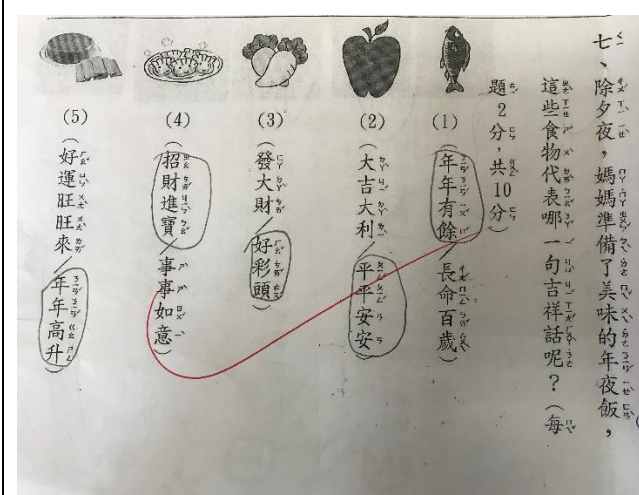 七、除夕夜，媽媽準備了美味的年夜飯，
這些食物代表哪一句吉祥話呢？（每
題2分，共10分）
(1)（年年有餘／長命百歲）
(2)（大吉大利／平平安安）
(3)（發大財／好彩頭）
(4)（招財進寶／事事如意）
(5)（好運旺旺來／年年高升）